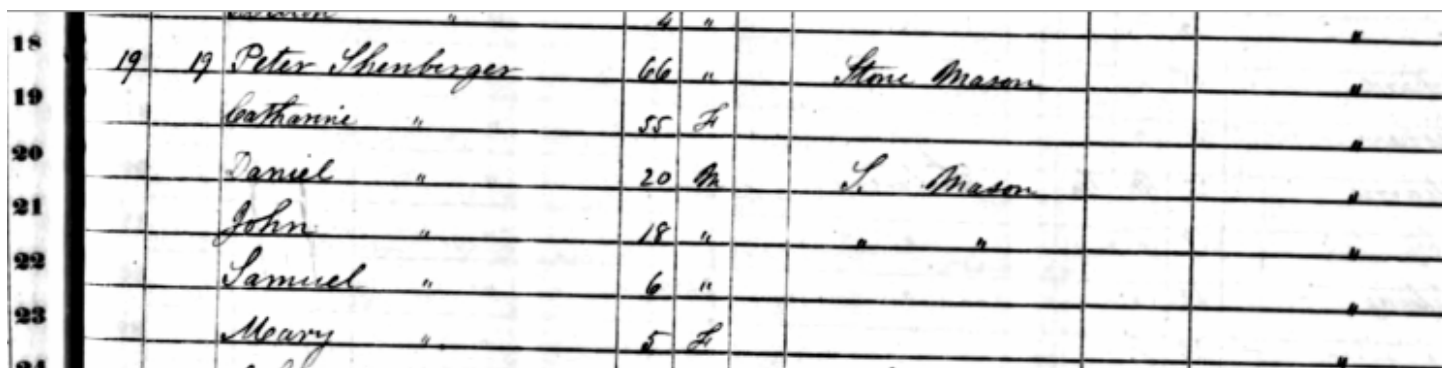 4 "
18 "
19 19 Peter Shenberger 66 " Stone Mason
19 "
Catharine " 55 F
20 "
Daniel " 20 M S. Mason
21 "
John " 18 " " "
22 "
Samuel " 6 "
23 "
Mary " 5 F
24 "